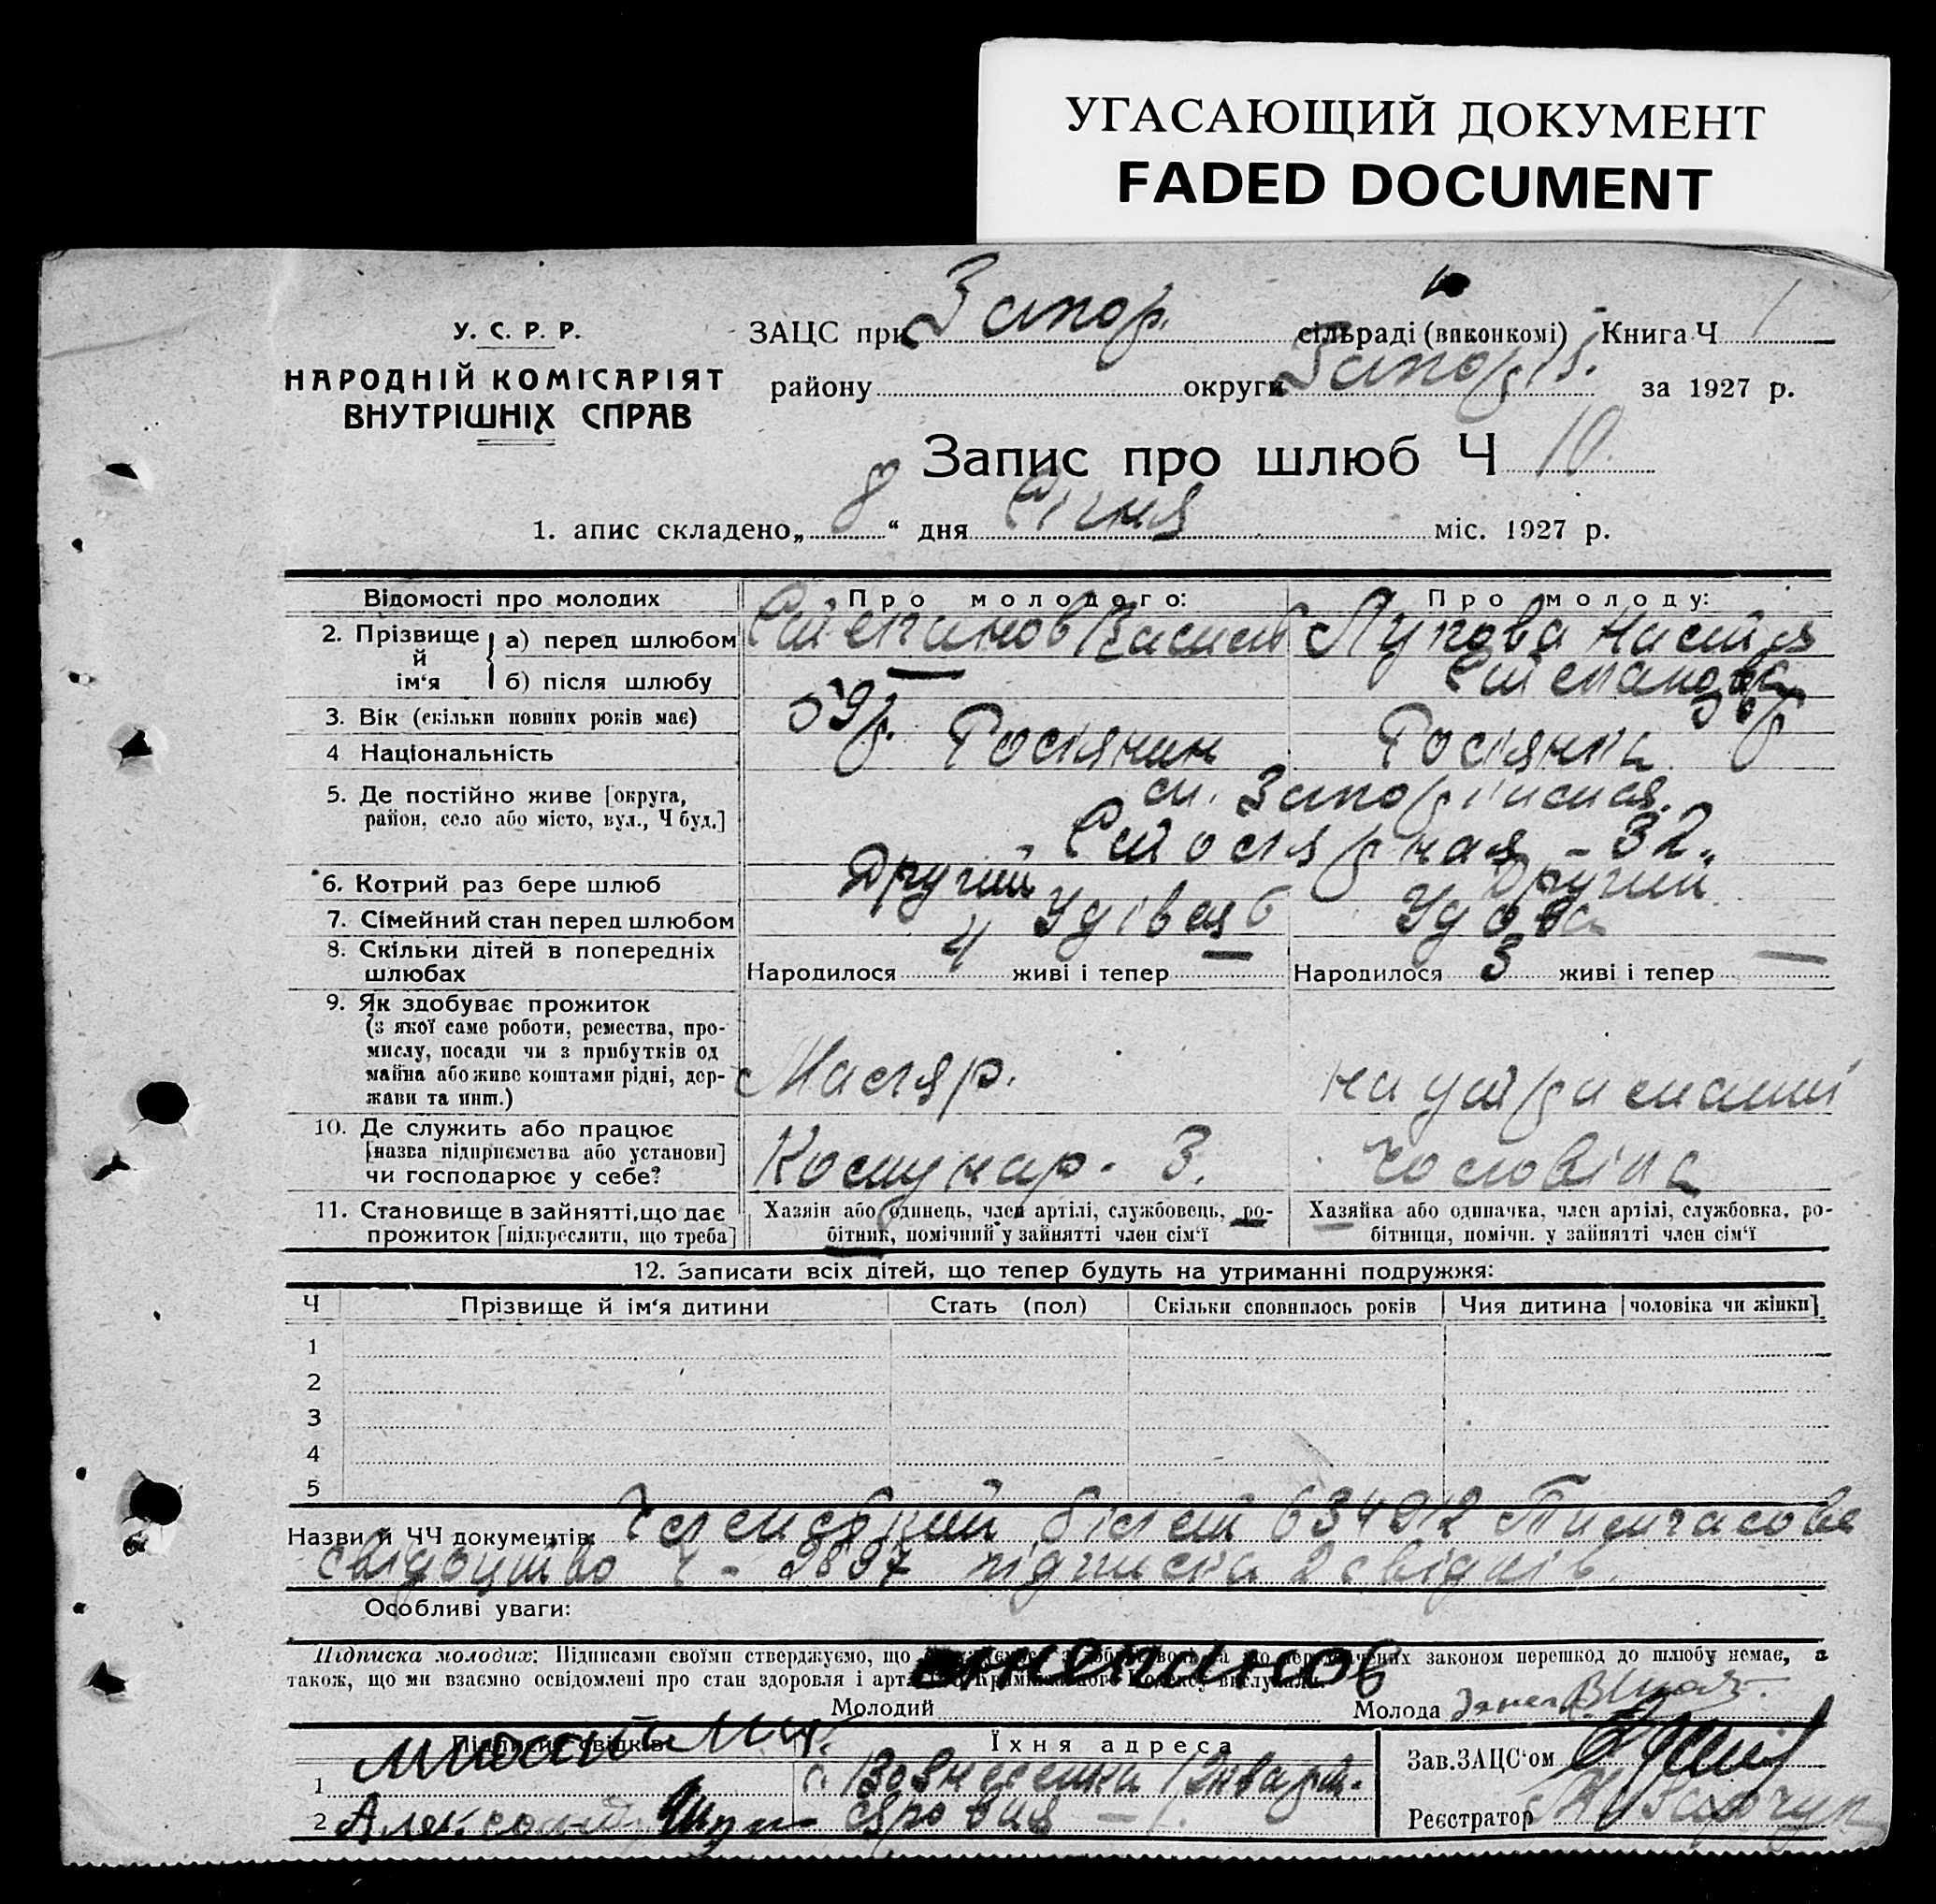 УГАСАЮЩИЙ ДОКУМЕНТ
FADED DOCUMENT
У. С. Р. Р.
НАРОДНІЙ КОМІСАРІЯТ
ВНУТРІШНІХ СПРАВ
ЗАЦС при Запор. сільраді (виконкомі) Книга Ч 1
району округи Запоріз. за 1927 р.
Запис про шлюб Ч 10.
1. апис складено „ 8 “ дня Січня міс. 1927 р.
Відомості про молодих Про молодого: Про молоду:
2. Прізвище й ім‘я
а) перед шлюбом Степанов Василь Лукова Настя
б) після шлюбу — Степанова
3. Вік (скільки повних років має) 59 р. 56 р
4 Національність Росіянин Росіянка.
5. Де постійно живе [округа, район, село або місто, вул., Ч буд.] ст. Запоріжжя.
Столярная – 32.
6. Котрий раз бере шлюб Другий Другий
7. Сімейний стан перед шлюбом Удівець Удова
8. Скільки дітей в попередніх шлюбах Народилося 4 живі і тепер — Народилося 3 живі і тепер —
9. Як здобуває прожиток
(з якої саме роботи, ремества, про-
мислу, посади чи з прибутків од
майна або живе коштами рідні, дер-
жави та инш.)
Маляр. на утриманні
10. Де служить або працює
[назва підприємства або установи]
чи господарює у себе?
Комунар. З. чоловіка
11. Становище в зайнятті, що дає
прожиток [підкреслити, що треба]
Хазяїн або одинець, член артілі, службовець, ро-
бітник, помічний у зайнятті член сім‘ї
Хазяйка або одиначка, член артілі, службовка, ро-
бітниця, помічн. у зайнятті член сім‘ї
12. Записати всіх дітей, що тепер будуть на утриманні подружжя:
Ч Прізвище й ім‘я дитини Стать (пол) Скільки сповнилось років Чия дитина [чоловіка чи жінки]
1
2
3
4
5
Назви й ЧЧ документів: Членський білет 634012 Тимчасове
свідоцтво Ч - 2897 підписка 2 свідків.
Особливі уваги:
Підписка молодих: Підписами своїми стверджуємо, що законом перешкод до шлюбу немає, а
також, що ми взаємно освідомлені про стан здоров‘я і арт. Кримінального Кодексу вислухали.
Молодий Степанов Молода
Підписи свідків Їхня адреса
1 с. Вознесенка
2 Александр
Зав. ЗАЦС‘ом
Реєстратор